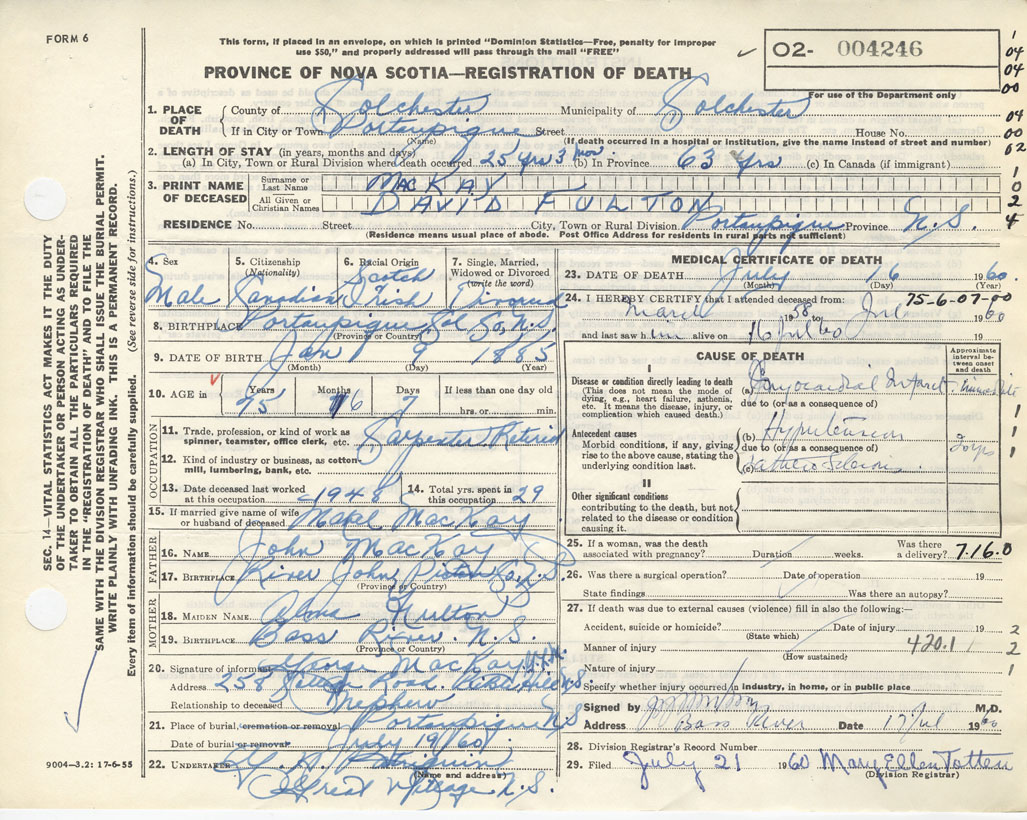 FORM 6
This form, if placed in an envelope, on which is printed "Dominion Statistics—Free, penalty for improper
use $50," and properly addressed will pass through the mail "FREE"
O2- 004246
PROVINCE OF NOVA SCOTIA—REGISTRATION OF DEATH
For use of the Department only
1. PLACE OF DEATH { County of Colchester Municipality of Colchester
If in City or Town Portaupique Street House No.
(Name) (If death occurred in a hospital or institution, give the name instead of street and number)
2. LENGTH OF STAY (in years, months and days)
(a) In City, Town or Rural Division where death occurred 25 yrs 3 mos. (b) In Province 63 yrs (c) In Canada (if immigrant)
3. PRINT NAME OF DECEASED { Surname or Last Name MacKAY
All Given or Christian Names DAVID FULTON
RESIDENCE No. Street City, Town or Rural Division Portaupique Province N.S.
(Residence means usual place of abode. Post Office Address for residents in rural parts not sufficient)
4. Sex Male
5. Citizenship (Nationality) Canadian
6. Racial Origin Scotch Irish
7. Single, Married, Widowed or Divorced (write the word)
8. BIRTHPLACE Portaupique Col Co. N.S.
(Province or Country)
9. DATE OF BIRTH Jan 9 1885
(Month) (Day) (Year)
10. AGE in { Years 75 Months 6 Days 7 If less than one day old
hrs. or min.
OCCUPATION
11. Trade, profession, or kind of work as spinner, teamster, office clerk, etc. Carpenter Retired
12. Kind of industry or business, as cotton-mill, lumbering, bank, etc.
13. Date deceased last worked at this occupation 1948
14. Total yrs. spent in this occupation 29
15. If married give name of wife or husband of deceased Mabel MacKay
FATHER
16. NAME John MacKay
17. BIRTHPLACE River John Pictou Co. N.S
(Province or Country)
MOTHER
18. MAIDEN NAME Fulton
19. BIRTHPLACE Bass River. N.S.
(Province or Country)
20. Signature of informant George MacKay
Address 258 Road. N.S.
Relationship to deceased Nephew
21. Place of burial, cremation or removal Portaupique N S
Date of burial or removal July 19/60
22. UNDERTAKER
(Name and address)
Great Village N.S.
9004—3.2: 17-6-55
MEDICAL CERTIFICATE OF DEATH
23. DATE OF DEATH July 16 1960
(Month) (Day)
24. I HEREBY CERTIFY that I attended deceased from: 75-6-07-00
March 1958 to Jul 1960
and last saw him alive on 16 Jul 60
CAUSE OF DEATH
Approximate interval between onset and death
I
Disease or condition directly leading to death
(This does not mean the mode of dying, e.g., heart failure, asthenia, etc. It means the disease, injury, or complication which caused death.)
(a) Myocardial Infarct Immediate
due to (or as a consequence of)
Antecedent causes
Morbid conditions, if any, giving rise to the above cause, stating the underlying condition last.
(b) Hypertension
due to (or as a consequence of)
(c)
II
Other significant conditions
contributing to the death, but not related to the disease or condition causing it.
25. If a woman, was the death associated with pregnancy? Duration weeks. Was there a delivery? 7.16.0
26. Was there a surgical operation? Date of operation 19
State findings Was there an autopsy?
27. If death was due to external causes (violence) fill in also the following:—
Accident, suicide or homicide? Date of injury 19
(State which)
Manner of injury 420.1
(How sustained)
Nature of injury
Specify whether injury occurred in industry, in home, or in public place
Signed by M.D.
Address Bass River Date 17 Jul 1960
28. Division Registrar's Record Number
29. Filed July 21 1960 Mary Ellen Totten
(Division Registrar)
SEC. 14—VITAL STATISTICS ACT MAKES IT THE DUTY
OF THE UNDERTAKER OR PERSON ACTING AS UNDER-
TAKER TO OBTAIN ALL THE PARTICULARS REQUIRED
IN THE "REGISTRATION OF DEATH" AND TO FILE THE
SAME WITH THE DIVISION REGISTRAR WHO SHALL ISSUE THE BURIAL PERMIT.
WRITE PLAINLY WITH UNFADING INK. THIS IS A PERMANENT RECORD.
Every item of information should be carefully supplied. (See reverse side for instructions.)
1
04
04
00
04
00
62
1
0
2
4
1
1
1
2
2
1